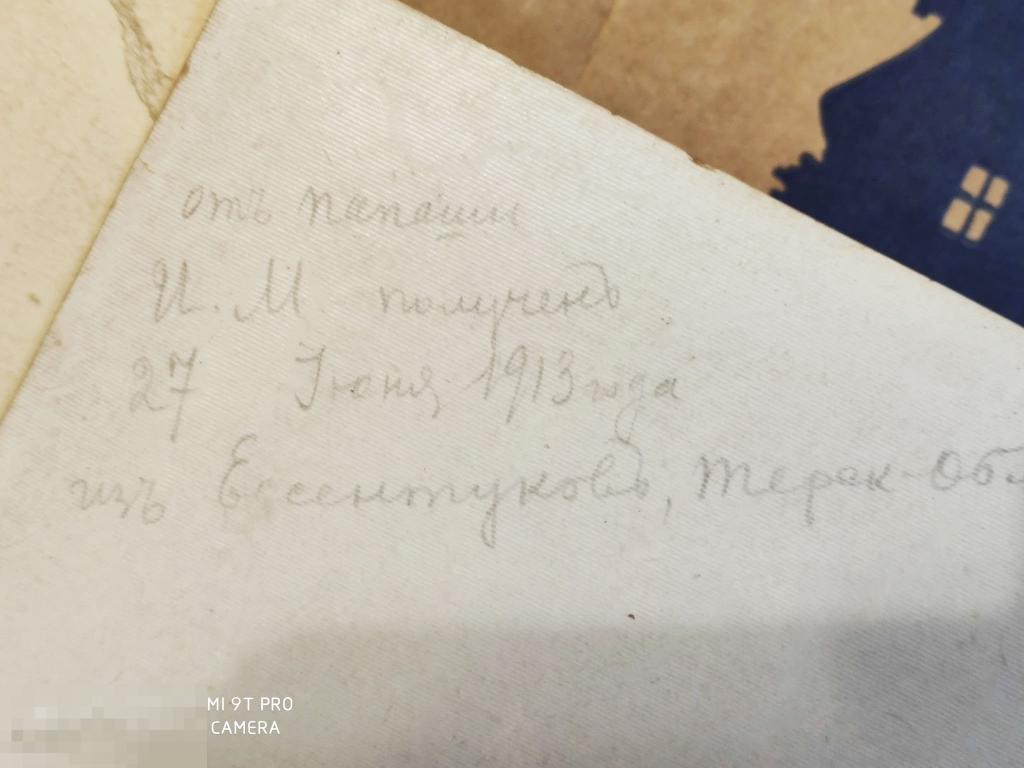 отъ папаши
И. М полученъ
27 Iюня 1913 года
изъ Ессентуковъ, терек-Обл
MI 9T PRO
CAMERA